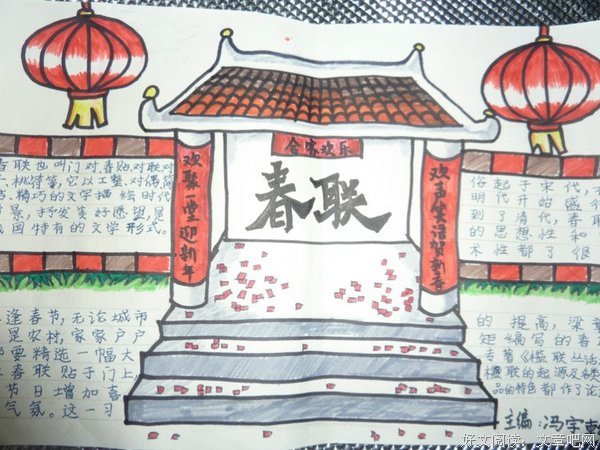 合家欢乐
春联
欢聚一堂迎新年
欢声笑语贺新春
春联也叫门对、春贴、对联、对
、桃符等,它以工整、对偶、简
、精巧的文字描绘时代
背景,抒发美好愿望,是
我国特有的文学形式。
逢春节,无论城市
是农村,家家户户
都要精选一幅大
春联贴于门上
节日增加喜
气氛。这一习
俗起于宋代,
明代开始盛
到了清代,春联
的思想性和
术性都了很
的提高,梁章
矩编写的春
专著《楹联丛话》
楹联的起源及各类
品的特色都作了论
主编:冯宇
好文阅读,文章吧网